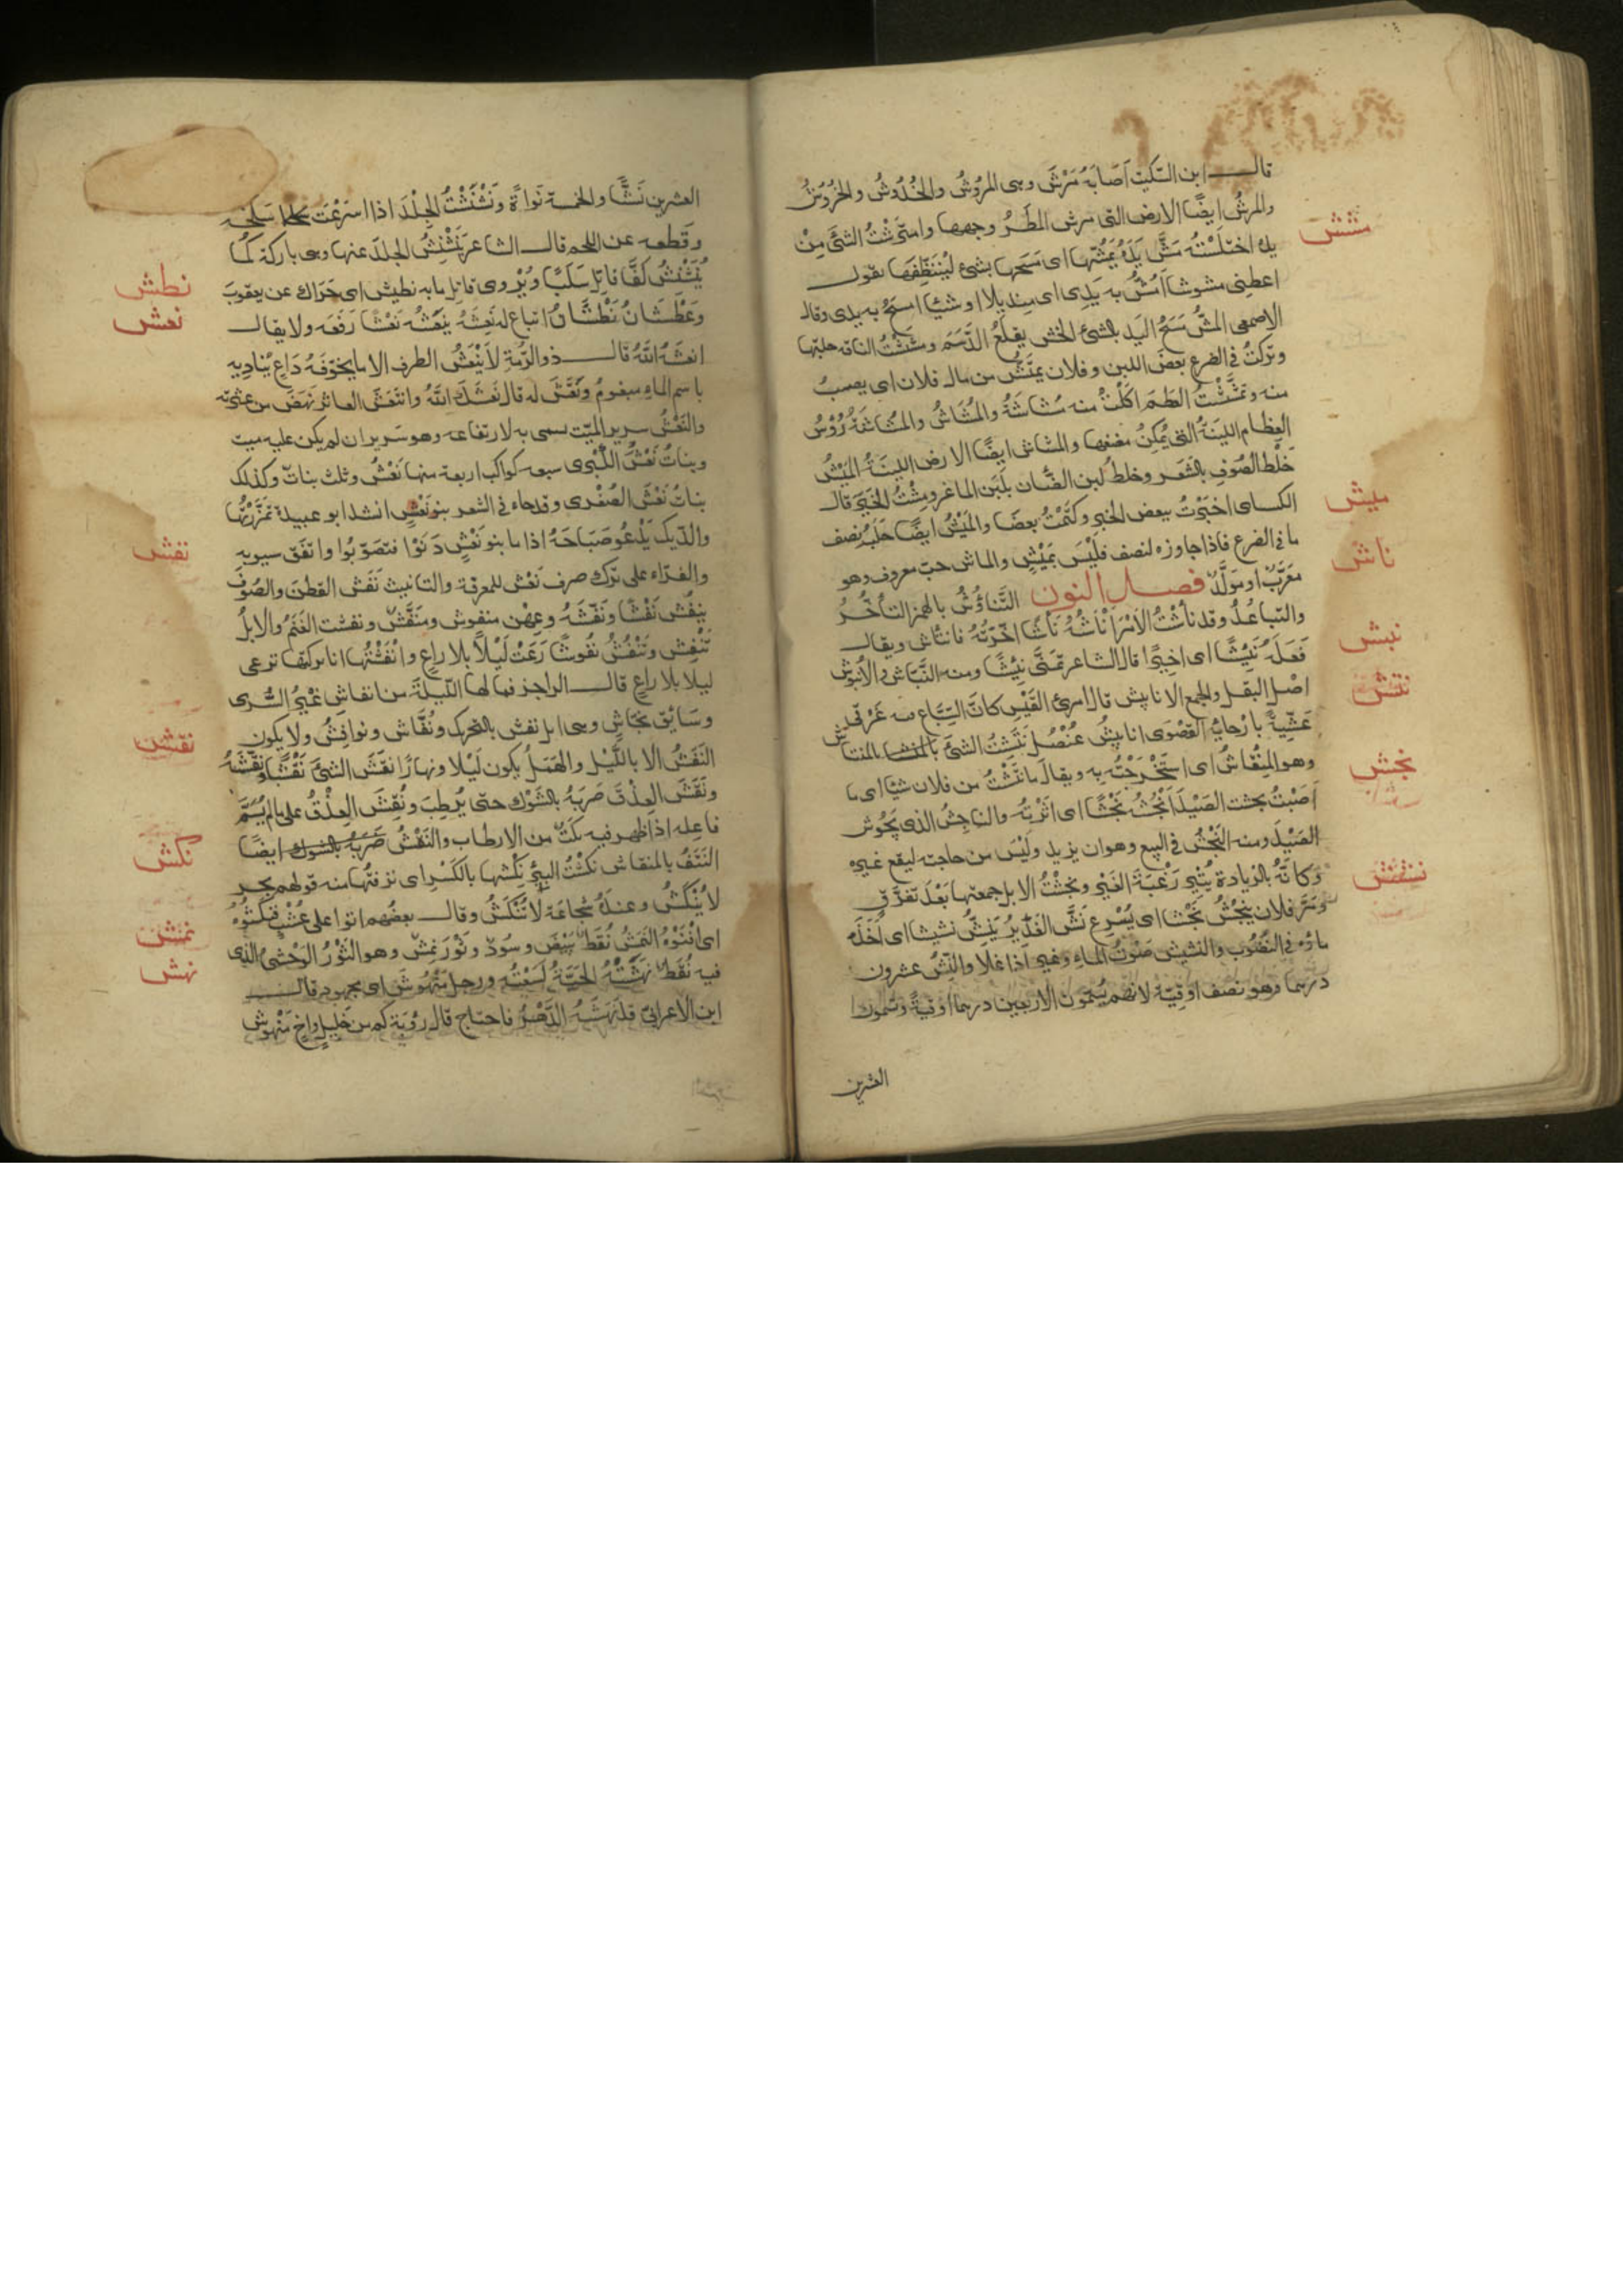 قال ابن السكيت أصابه مَرْش وهى المُرُوشُ والخُدُوشُ والخُرُوشُ
والمرشُ ايضًا الارض التى مرش المطرُ وجهها وامترشْتُ الشئ مِنْ
مشش
يده اختلسْتُه مَشَّ يَدَهُ يَمُشُّها اى مَسَحَها بشئ لِيُنَظِّفَهَا يقول
اعطنى مشوشا أمُشُّ به يَدِى اى منديلا او شيئا امسح به يدى وقال
الاصمعى المشّ مَسْحُ اليَدِ بالشئ الخشن يقلعُ الدَّسَمَ ومشَشْتُ الناقه حلبتها
وتركتُ فى الضرع بعض اللبن وفلان يمتَشُّ من مال فلان اى يصيب
منه وتمشّشْتُ العَظمَ اكَلْتُ منه مُشَاشَةُ والمُشَاشُ والمُشَاشَةُ رُؤسُ
العِظَام اللينَةُ التى يُمكِنُ مضغها والمشاش ايضًا الارض اللينَةُ المَيْشُ
ميش
خَلْطُ الصُوفِ بالشَعَر وخلطُ لبن الضَّان بلَبَنِ الماعز ومِشْتُ الخَبَرَ قال
الكساى اخبَرْتُ ببعض الخبرِ وكتَمْتُ بعضَا والمَيْشُ ايضًا حَلَبُ نصف
ما فى الضرع فاذا جاوزه لنصف فليْسَ بمَيْشٍ والماش حبّ معروف وهو
ناش
مُعَرَّبٌ او مولَّدٌ فصل النون التَّناؤُشُ بالهمز التأخُّرُ
والتباعُدُ وقد نَأَشْتُ الامْرَ أنْأشُهُ نَأْشًا اخَّرتُهُ فانتأش ويقال
نبش
فَعَلَهُ نَئِيشًا اى اخِيرًا قال الشاعر تمَنَّى نئيشًا ومنه النَّبّاش والأُنبُوش
اصْلُ البقل والجمع الانابيش قال امرئ القَيْسِ كانَّ السِّبَاع فيه غَرْقى
نتش
عَشِيّةً بارْجايِه القصْوَى انابيشُ عُنْصُلِ نَتَشْتُ الشئ بالمنتاش
وهو المِنْقَاشُ اى استَخْرَجْتُه به ويقال ما نَتَشْتُ من فلان شيئا اى ما
نجش
أصَبْتُ نجشت الصَيْدَ أنْجُشُهُ نَجْشًا اى اثَرْتُه والناجِشُ الذى يَحُوش
الصَيْدَ ومنه النَجْشُ فى البيع وهو ان يزيد ولَيْسَ من حاجته ليقع غيره
وكانّهُ بالزيادة يُثِير رَغْبَةَ الغَيْرِ ونجشْتُ الابل جمعتها بَعْدَ تفرّق
نشش
ومَرّ فلان ينجُشُ نَجْشا اى يُسْرِع نَشَّ الغَدِيرُ يَنِشُّ نشيشا اى أخَذَ
ماؤه فى النُضُوب والنشيش صَوْتُ الماءِ وغيره اذا غلا والنَّشُّ عشرون
درهما وهو نصف اوقيّة لانهم يُسَمّون الاربعين درهما أوقية ويسمون
العشرين
العشرين نَشًّا والخمسة نَوَاةً ونَشْنَشْتُ الجِلْدَ اذا اسْرَعْتَ سَلْخَه
وقطعه عن اللحم قال الشاعر يُنَشْنِشُ الجلدَ عنها وهى باركة كما
نطش
يُنَشْنِشُ كَفَّا فاتِلٍ سَلَبًا ويُرْوى قاتل ما به نطيش اى حَرَاك عن يعقوبَ
نعش
وعَطْشانُ نَطْشَانُ اتباع له نَعَشَهُ يَنْعَشُه نَعْشًا رفَعَه ولا يقال
انعَشَهُ اللهُ قال ذو الرُمّةِ لا يَنْعَشُ الطرف الا ما يخوّفَهُ دَاعٍ يُنادِيه
باسم الماءِ مبغومُ ونعَّش له قال نَعَشَكَ اللهُ وانتَعَشَ العاثر نَهَضَ من عثرته
والنَعْشُ سرير الميّت سمى به لارتفاعه وهو سرير ان لم يكن عليه ميت
وبناتُ نَعْشٍ الكُبْرى سبعه كواكب اربعة منها نَعْشُ وثلث بناتٌ وكذلك
بناتُ نَعْشَ الصُغْرى وقد جاء فى الشعر بنو نَعْشٍ انشد ابو عبيدة تمَزَّزْتُها
والدّيك يَدْعُو صَبَاحَهُ اذا ما بنو نَعْشٍ دَنَوْا فتصَوّبُوا واتفَق سيبويه
نفش
والفرّاء على تَرْك صرف نَعْش للمعرفة والتانيث نَفَش القطنَ والصُوفَ
ينفُش نَفْشًا ونَفّشَهُ وعِهْن منفوش ومنَفَّشٌ ونفشت الغَنَمُ والابلُ
تنْفِش وتَنْفُشُ نفُوشًا رَعَتْ لَيْلًا بلا راعٍ وانْفَشْتُها انا تركتها ترعى
ليلا بلا راعٍ قال الراجز فما لها اللَيلَةَ من انفاش غيرُ السُرى
وسَايِق نجَاشٍ وهى ابل نفش بالتحريك ونُفّاش ونوافِشُ ولا يكون
نقش
النَفَشُ الا بالليْل والهمَلُ يكون ليلا ونهارًا نقَشَ الشئَ نَقْشًا ونَقّشَهُ
ونَقَشَ العِذْقَ ضَرَبَهُ بالشَوْك حتى يُرطِبَ ونُقِشَ العِذْقُ على ما لم يُسَمَّ
فاعِله اذا ظهر فيه نكتٌ من الارطاب والنَقْشُ ضَرَبَهُ بالشوك ايضًا
نكش
النَتْفُ بالمنقاش نكَشْتُ البِئرَ نَكِشُها بالكَسْرِ اى نزفتُها منه قولهم بحر
لا يُنْكَشُ وعندهُ شجاعَة لا تُنْكَشُ وقال بعضُهم اتوا على عُشْبٍ فنَكَشُوهُ
نمش
اى افنَوْهُ النَمَشُ نُقَطٌ بِيضٌ وسُودٌ وثَوْر نَمِشٌ وهو الثَوْرُ الوَحْشىُّ الذى
نهش
فيه نُقَطٌ نهَشَتْهُ الحَيَّةُ لَسَعَتْهُ ورجل مَنْهُوشٌ اى مجهود قال
ابن الاعرابى قد نهَشَهُ الدَهْرُ فاحتاج قال رُؤبَة كم من خليلٍ واخٍ مَنْهوش